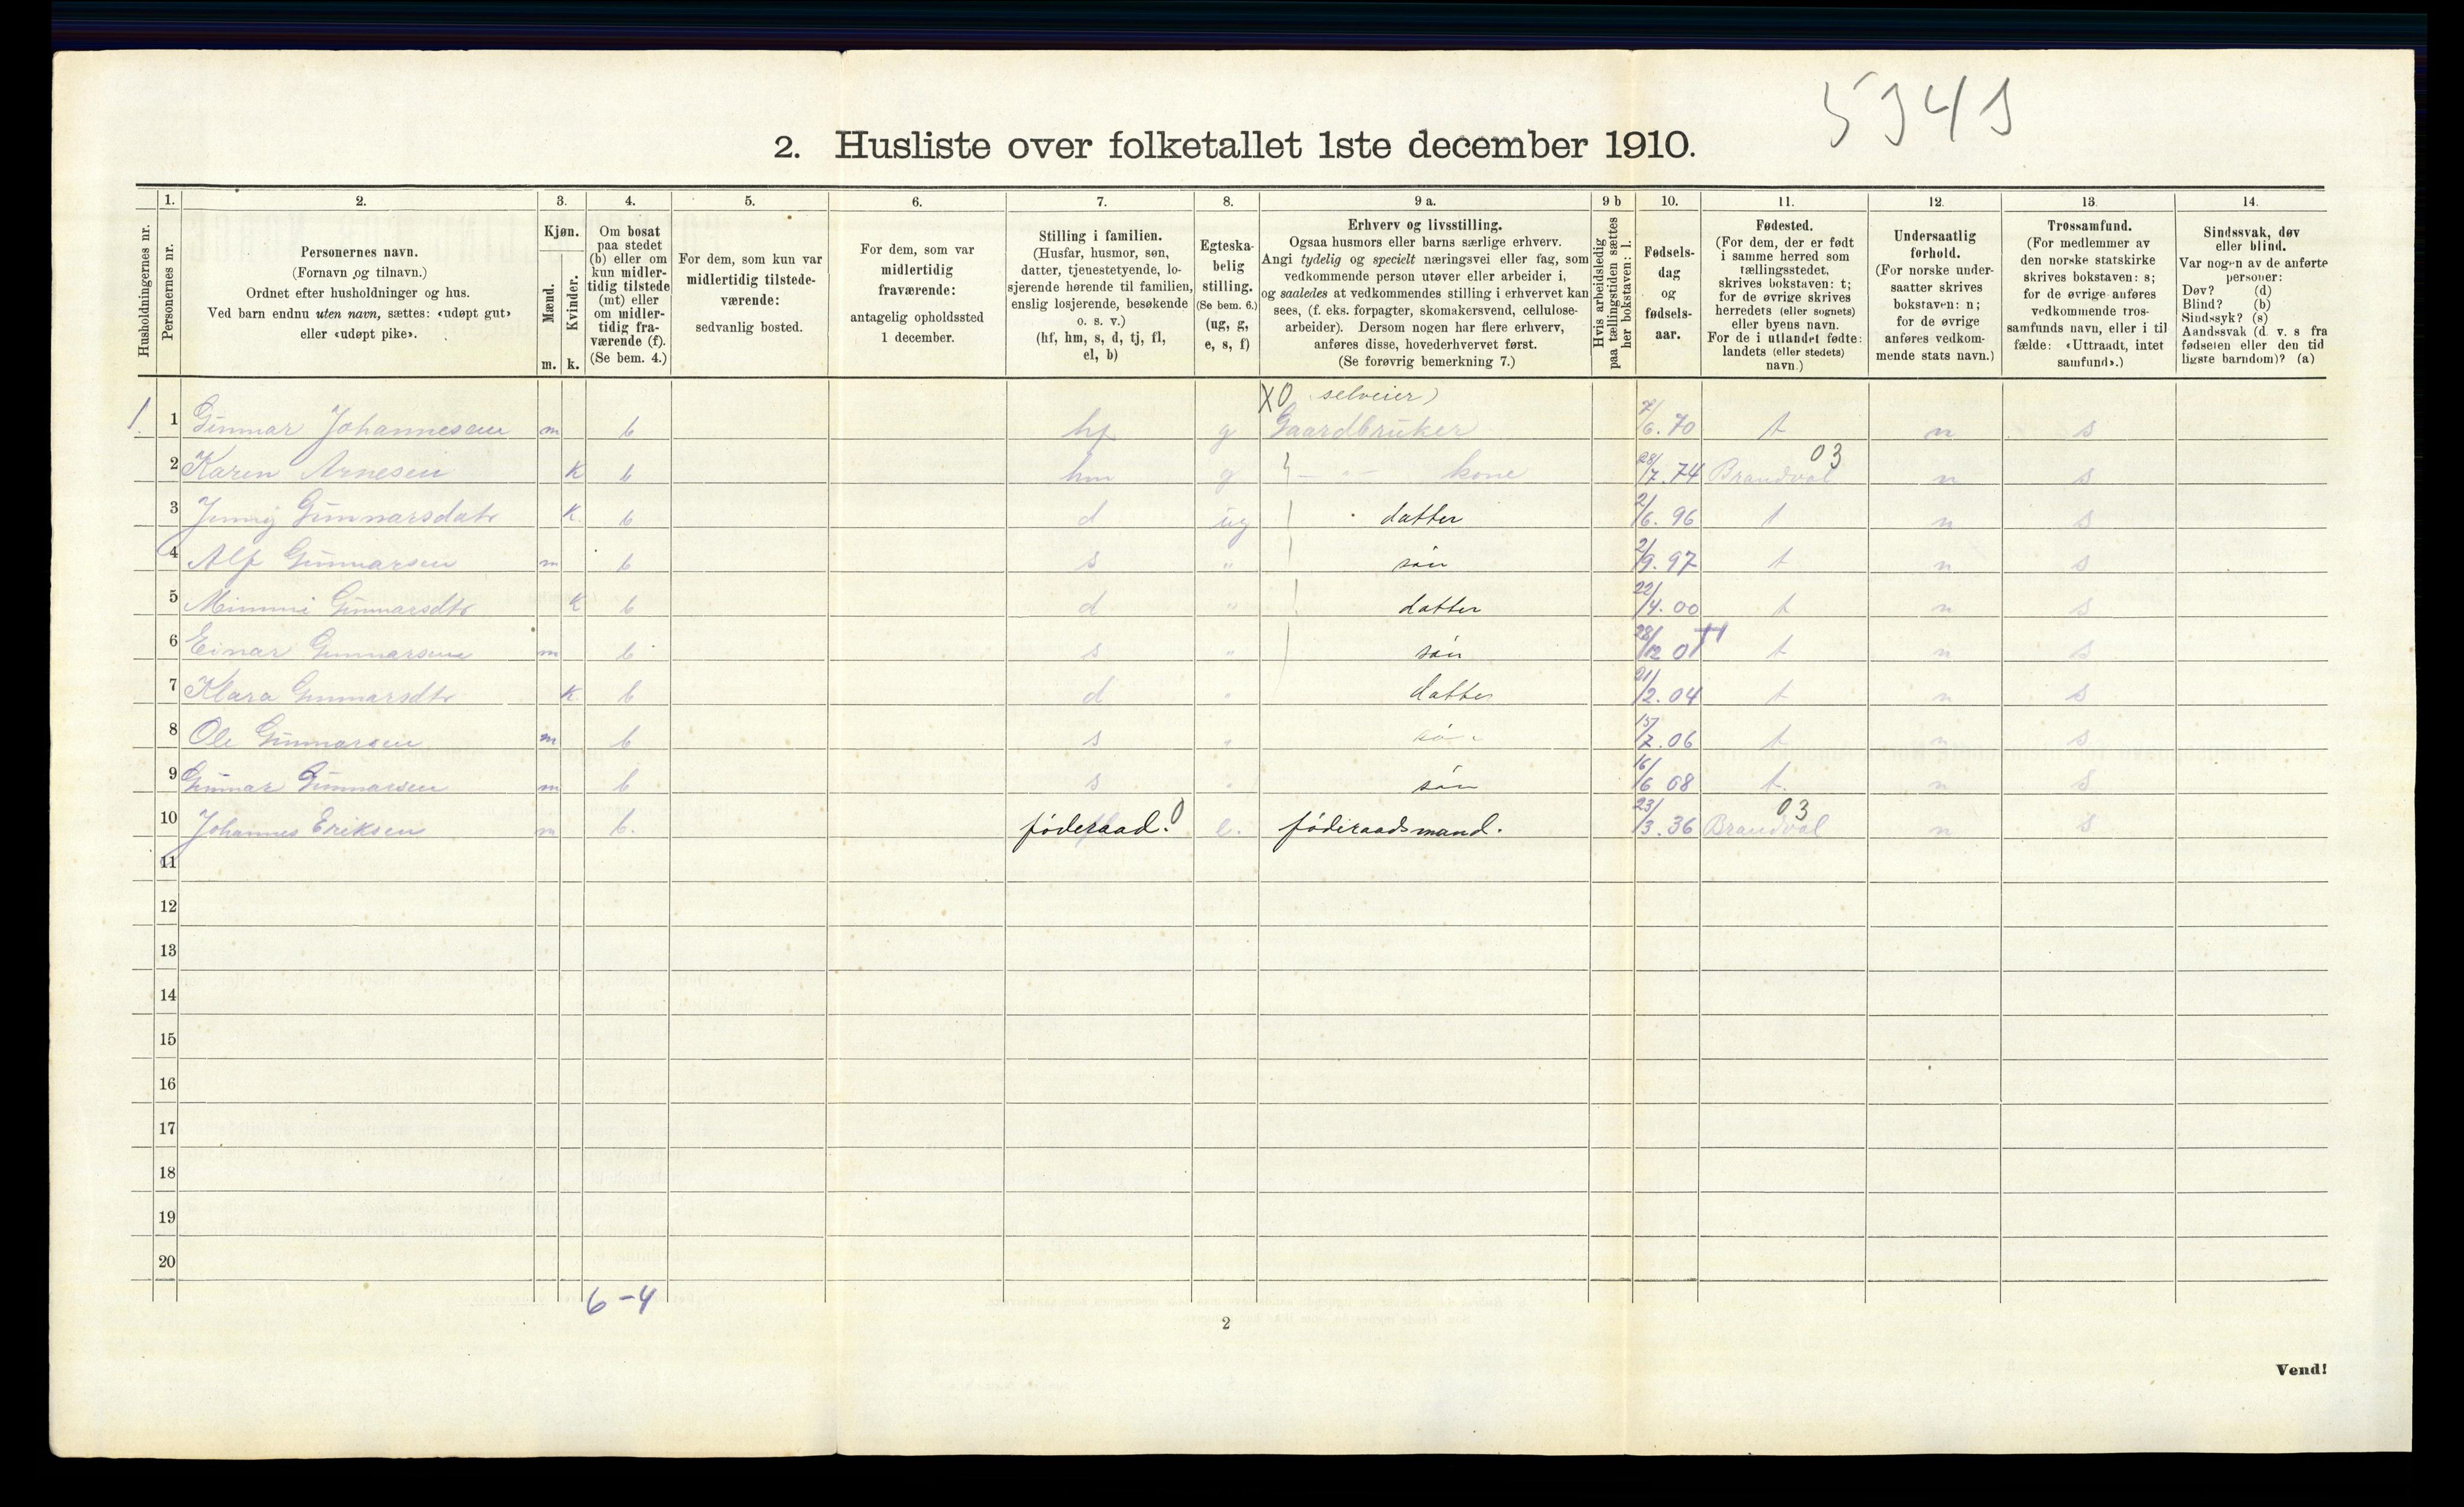 5941
2. Husliste over folketallet 1ste december 1910.
Husholdningernes nr.
1.
Personernes nr.
2.
Personernes navn.
(Fornavn og tilnavn.)
Ordnet efter husholdninger og hus.
Ved barn endnu uten navn, sættes: «udøpt gut»
eller «udøpt pike».
3.
Kjøn.
Mænd.
m.
Kvinder.
k.
4.
Om bosat
paa stedet
(b) eller om
kun midler-
tidig tilstede
(mt) eller
om midler-
tidig fra-
værende (f).
(Se bem. 4.)
5.
For dem, som kun var
midlertidig tilstede-
værende:
sedvanlig bosted.
6.
For dem, som var
midlertidig
fraværende:
antagelig opholdssted
1 december.
7.
Stilling i familien.
(Husfar, husmor, søn,
datter, tjenestetyende, lo-
sjerende hørende til familien,
enslig losjerende, besøkende
o. s. v.)
(hf, hm, s, d, tj, fl,
el, b)
8.
Egteska-
belig
stilling.
(Se bem. 6.)
(ug, g,
e, s, f)
9 a.
Erhverv og livsstilling.
Ogsaa husmors eller barns særlige erhverv.
Angi tydelig og specielt næringsvei eller fag, som
vedkommende person utøver eller arbeider i,
og saaledes at vedkommendes stilling i erhvervet kan
sees, (f. eks. forpagter, skomakersvend, cellulose-
arbeider). Dersom nogen har flere erhverv,
anføres disse, hovederhvervet først.
(Se forøvrig bemerkning 7.)
9 b
Hvis arbeidsledig
paa tællingstiden sættes
her bokstaven: l.
10.
Fødsels-
dag
og
fødsels-
aar.
11.
Fødested.
(For dem, der er født
i samme herred som
tællingsstedet,
skrives bokstaven: t;
for de øvrige skrives
herredets (eller sognets)
eller byens navn.
For de i utlandet fødte:
landets (eller stedets)
navn.)
12.
Undersaatlig
forhold.
(For norske under-
saatter skrives
bokstaven: n;
for de øvrige
anføres vedkom-
mende stats navn.)
13.
Trossamfund.
(For medlemmer av
den norske statskirke
skrives bokstaven: s;
for de øvrige anføres
vedkommende tros-
samfunds navn, eller i til
fælde: «Uttraadt, intet
samfund».)
14.
Sindssvak, døv
eller blind.
Var nogen av de anførte
personer:
Døv? (d)
Blind? (b)
Sindssyk? (s)
Aandssvak (d. v. s fra
fødselen eller den tid
ligste barndom)? (a)
X0 selveier)
1. 1 Gunnar Johannesen m b hf g Gaardbruker 7/6.70 t n s
03
2 Karen Arnesen K b hm g — " — kone 28/7.74 Brandval n s
3 Jenny Gunnarsdatr K. b d ug datter 2/6.96 t n s
4 Alf Gunnarsen m b s " søn 2/9.97 t n s
5 Mimmi Gunnarsdtr K b d " datter 22/4.00 t n s
6 Einar Gunnarsen m b s " søn 28/12 01 t n s
7 Klara Gunnarsdtr K. b d " datter 21/2.04 t n s
8 Ole Gunnarsen m b s " søn 15/7.06 t n s
9 Gunnar Gunnarsen m b s " søn 16/6 08 t. n s
03
10 Johannes Eriksen m b. føderaad. 0 e. føderaadsmand. 23/3.36 Brandval n s
11
12
13
14
15
16
17
18
19
20
6-4
2
Vend!